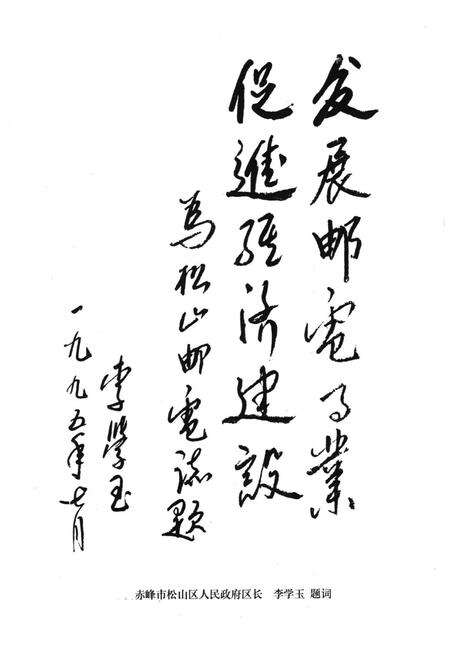 发展邮电事業
促進经济建設
为松山邮電誌题
李學玉
一九九五年七月
赤峰市松山区人民政府区长 李学玉 题词